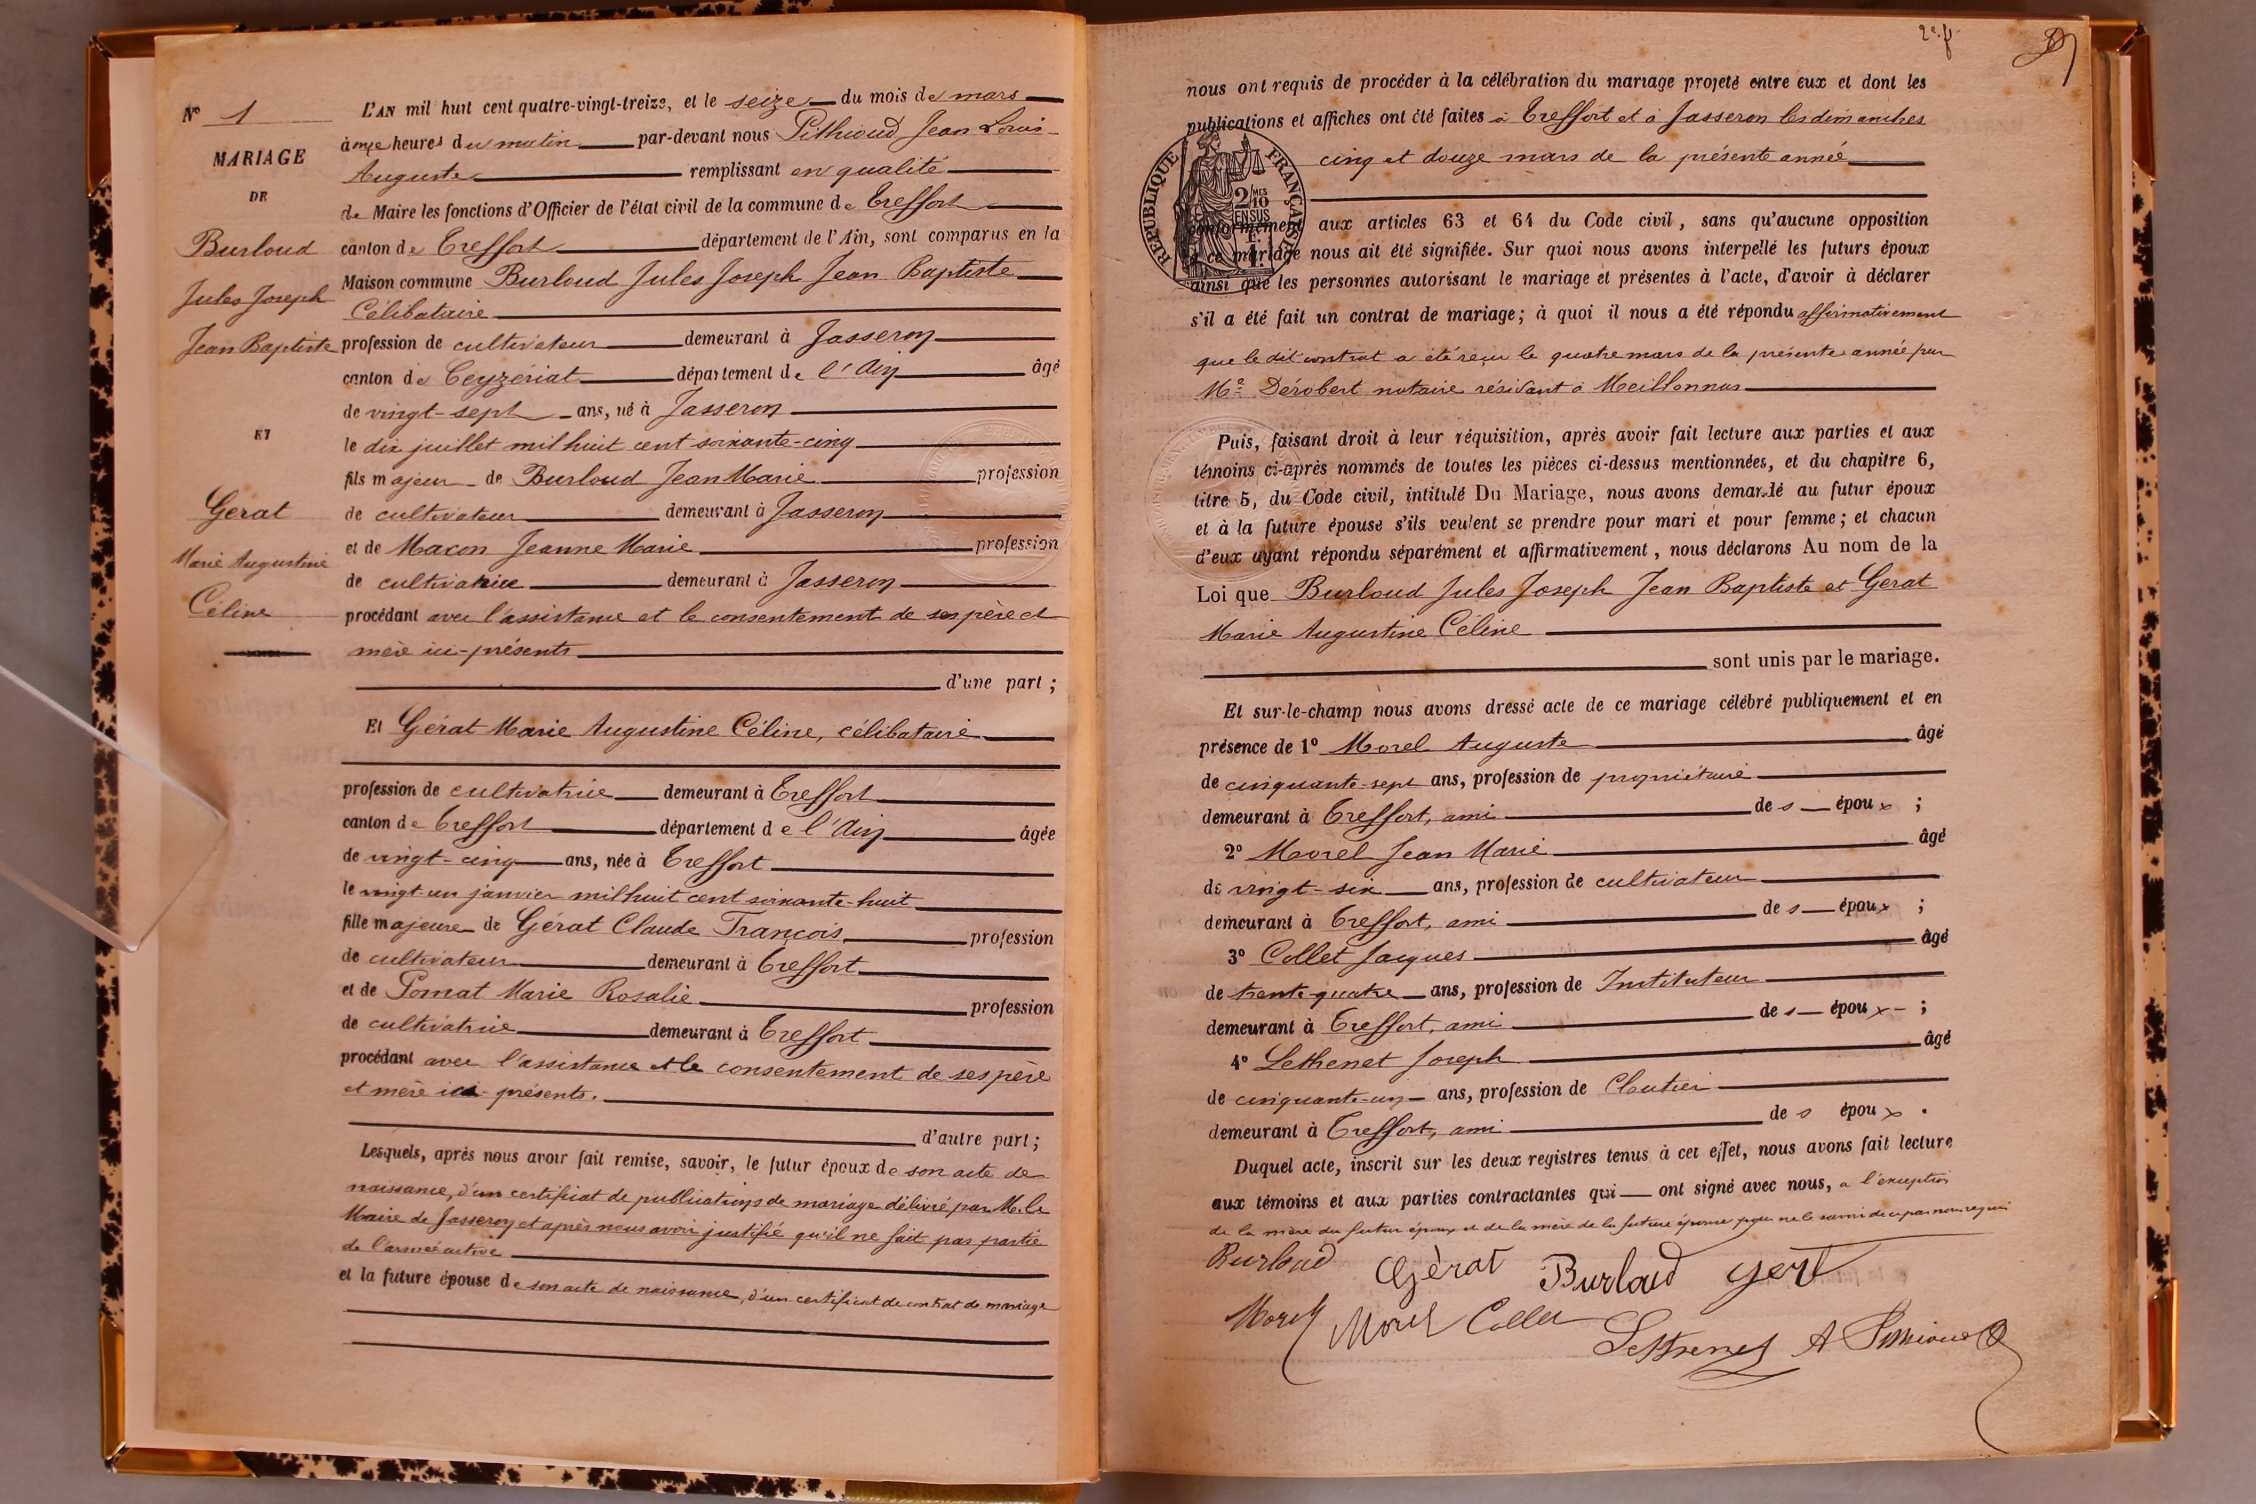 Nº 1
MARIAGE
DE
Burloud
Jules Joseph
Jean Baptiste
ET
Gérat
Marie Augustine
Céline
L'AN mil huit cent quatre-vingt-treize, et le seize du mois de mars
à onze heures du matin par-devant nous Pithioud Jean Louis
Auguste remplissant en qualité
de Maire les fonctions d'Officier de l'état civil de la commune de Treffort
canton de Treffort département de l'Ain, sont comparus en la
Maison commune Burloud Jules Joseph Jean Baptiste
Célibataire
profession de cultivateur demeurant à Jasseron
canton de Ceyzériat département de l'Ain âgé
de vingt-sept ans, né à Jasseron
le dix juillet mil huit cent soixante-cinq
fils majeur de Burloud Jean Marie profession
de cultivateur demeurant à Jasseron
et de Macon Jeanne Marie profession
de cultivatrice demeurant à Jasseron
procédant avec l'assistance et le consentement de ses père et
mère ici-présents
d'une part ;
Et Gérat Marie Augustine Céline, célibataire
profession de cultivatrice demeurant à Treffort
canton de Treffort département de l'Ain âgée
de vingt-cinq ans, née à Treffort
le vingt-un janvier mil huit cent soixante-huit
fille majeure de Gérat Claude François profession
de cultivateur demeurant à Treffort
et de Pomat Marie Rosalie profession
de cultivatrice demeurant à Treffort
procédant avec l'assistance et le consentement de ses père
et mère ici-présents.
d'autre part ;
Lesquels, après nous avoir fait remise, savoir, le futur époux de son acte de
naissance, d'un certificat de publications de mariage délivré par M. le
Maire de Jasseron et après nous avoir justifié qu'il ne fait pas partie
de l'armée active
et la future épouse de son acte de naissance, d'un certificat de contrat de mariage
2e f.
nous ont requis de procéder à la célébration du mariage projeté entre eux et dont les
publications et affiches ont été faites à Treffort et à Jasseron les dimanches
cinq et douze mars de la présente année
RÉPUBLIQUE FRANÇAISE
2/10 MES
EN SUS
conformément aux articles 63 et 64 du Code civil, sans qu'aucune opposition
à ce mariage nous ait été signifiée. Sur quoi nous avons interpellé les futurs époux
ainsi que les personnes autorisant le mariage et présentes à l'acte, d'avoir à déclarer
s'il a été fait un contrat de mariage ; à quoi il nous a été répondu affirmativement
que le dit contrat a été reçu le quatre mars de la présente année par
Me Dérobert notaire résidant à Meillonnas
Puis, faisant droit à leur réquisition, après avoir fait lecture aux parties et aux
témoins ci-après nommés de toutes les pièces ci-dessus mentionnées, et du chapitre 6,
titre 5, du Code civil, intitulé Du Mariage, nous avons demandé au futur époux
et à la future épouse s'ils veulent se prendre pour mari et pour femme ; et chacun
d'eux ayant répondu séparément et affirmativement, nous déclarons Au nom de la
Loi que Burloud Jules Joseph Jean Baptiste et Gérat
Marie Augustine Céline
sont unis par le mariage.
Et sur-le-champ nous avons dressé acte de ce mariage célébré publiquement et en
présence de 1º Morel Auguste âgé
de cinquante-sept ans, profession de propriétaire
demeurant à Treffort, ami de s époux ;
2º Morel Jean Marie âgé
de vingt-six ans, profession de cultivateur
demeurant à Treffort, ami de s époux ;
3º Collet Jacques âgé
de trente-quatre ans, profession de Instituteur
demeurant à Treffort, ami de s époux ;
4º Lethenet Joseph âgé
de cinquante-un ans, profession de Cloutier
demeurant à Treffort, ami de s époux .
Duquel acte, inscrit sur les deux registres tenus à cet effet, nous avons fait lecture
aux témoins et aux parties contractantes qui ont signé avec nous, à l'exception
de la mère du futur époux et de la mère de la future épouse pour ne le savoir de ce par nous requis
Burloud Gérat Burloud Gerat
Morel Morel Collet
Lethenet A Pithioud